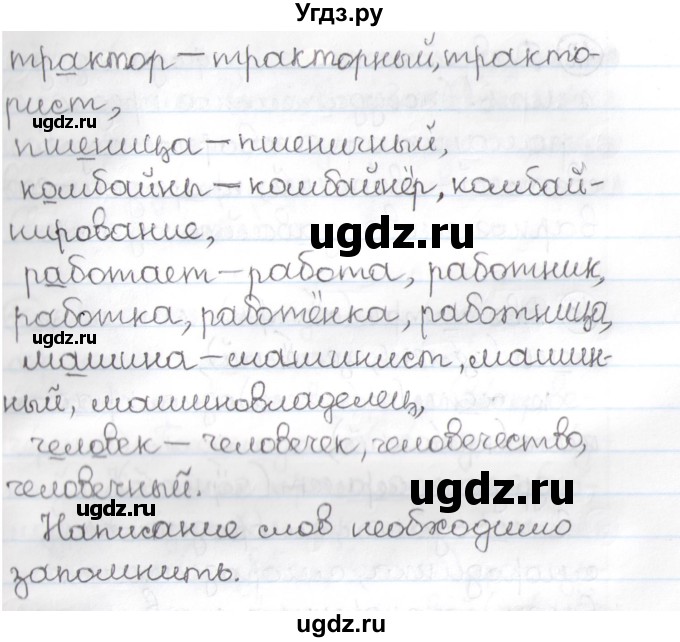 Угдз.ру
трактор – тракторный, тракто-
рист,
ugdz.ru
пшеница – пшеничный,
комбайны – комбайнёр, комбай-
нирование,
ugdz.ru
работает – работа, работник,
работка, работёнка, работница,
ugdz.ru
машина – машинист, машин-
ный, машиновладелец,
человек – человечек, человечество,
человечный.
ugdz.ru
ugdz.ru
Написание слов необходимо
запомнить.
ugdz.ru